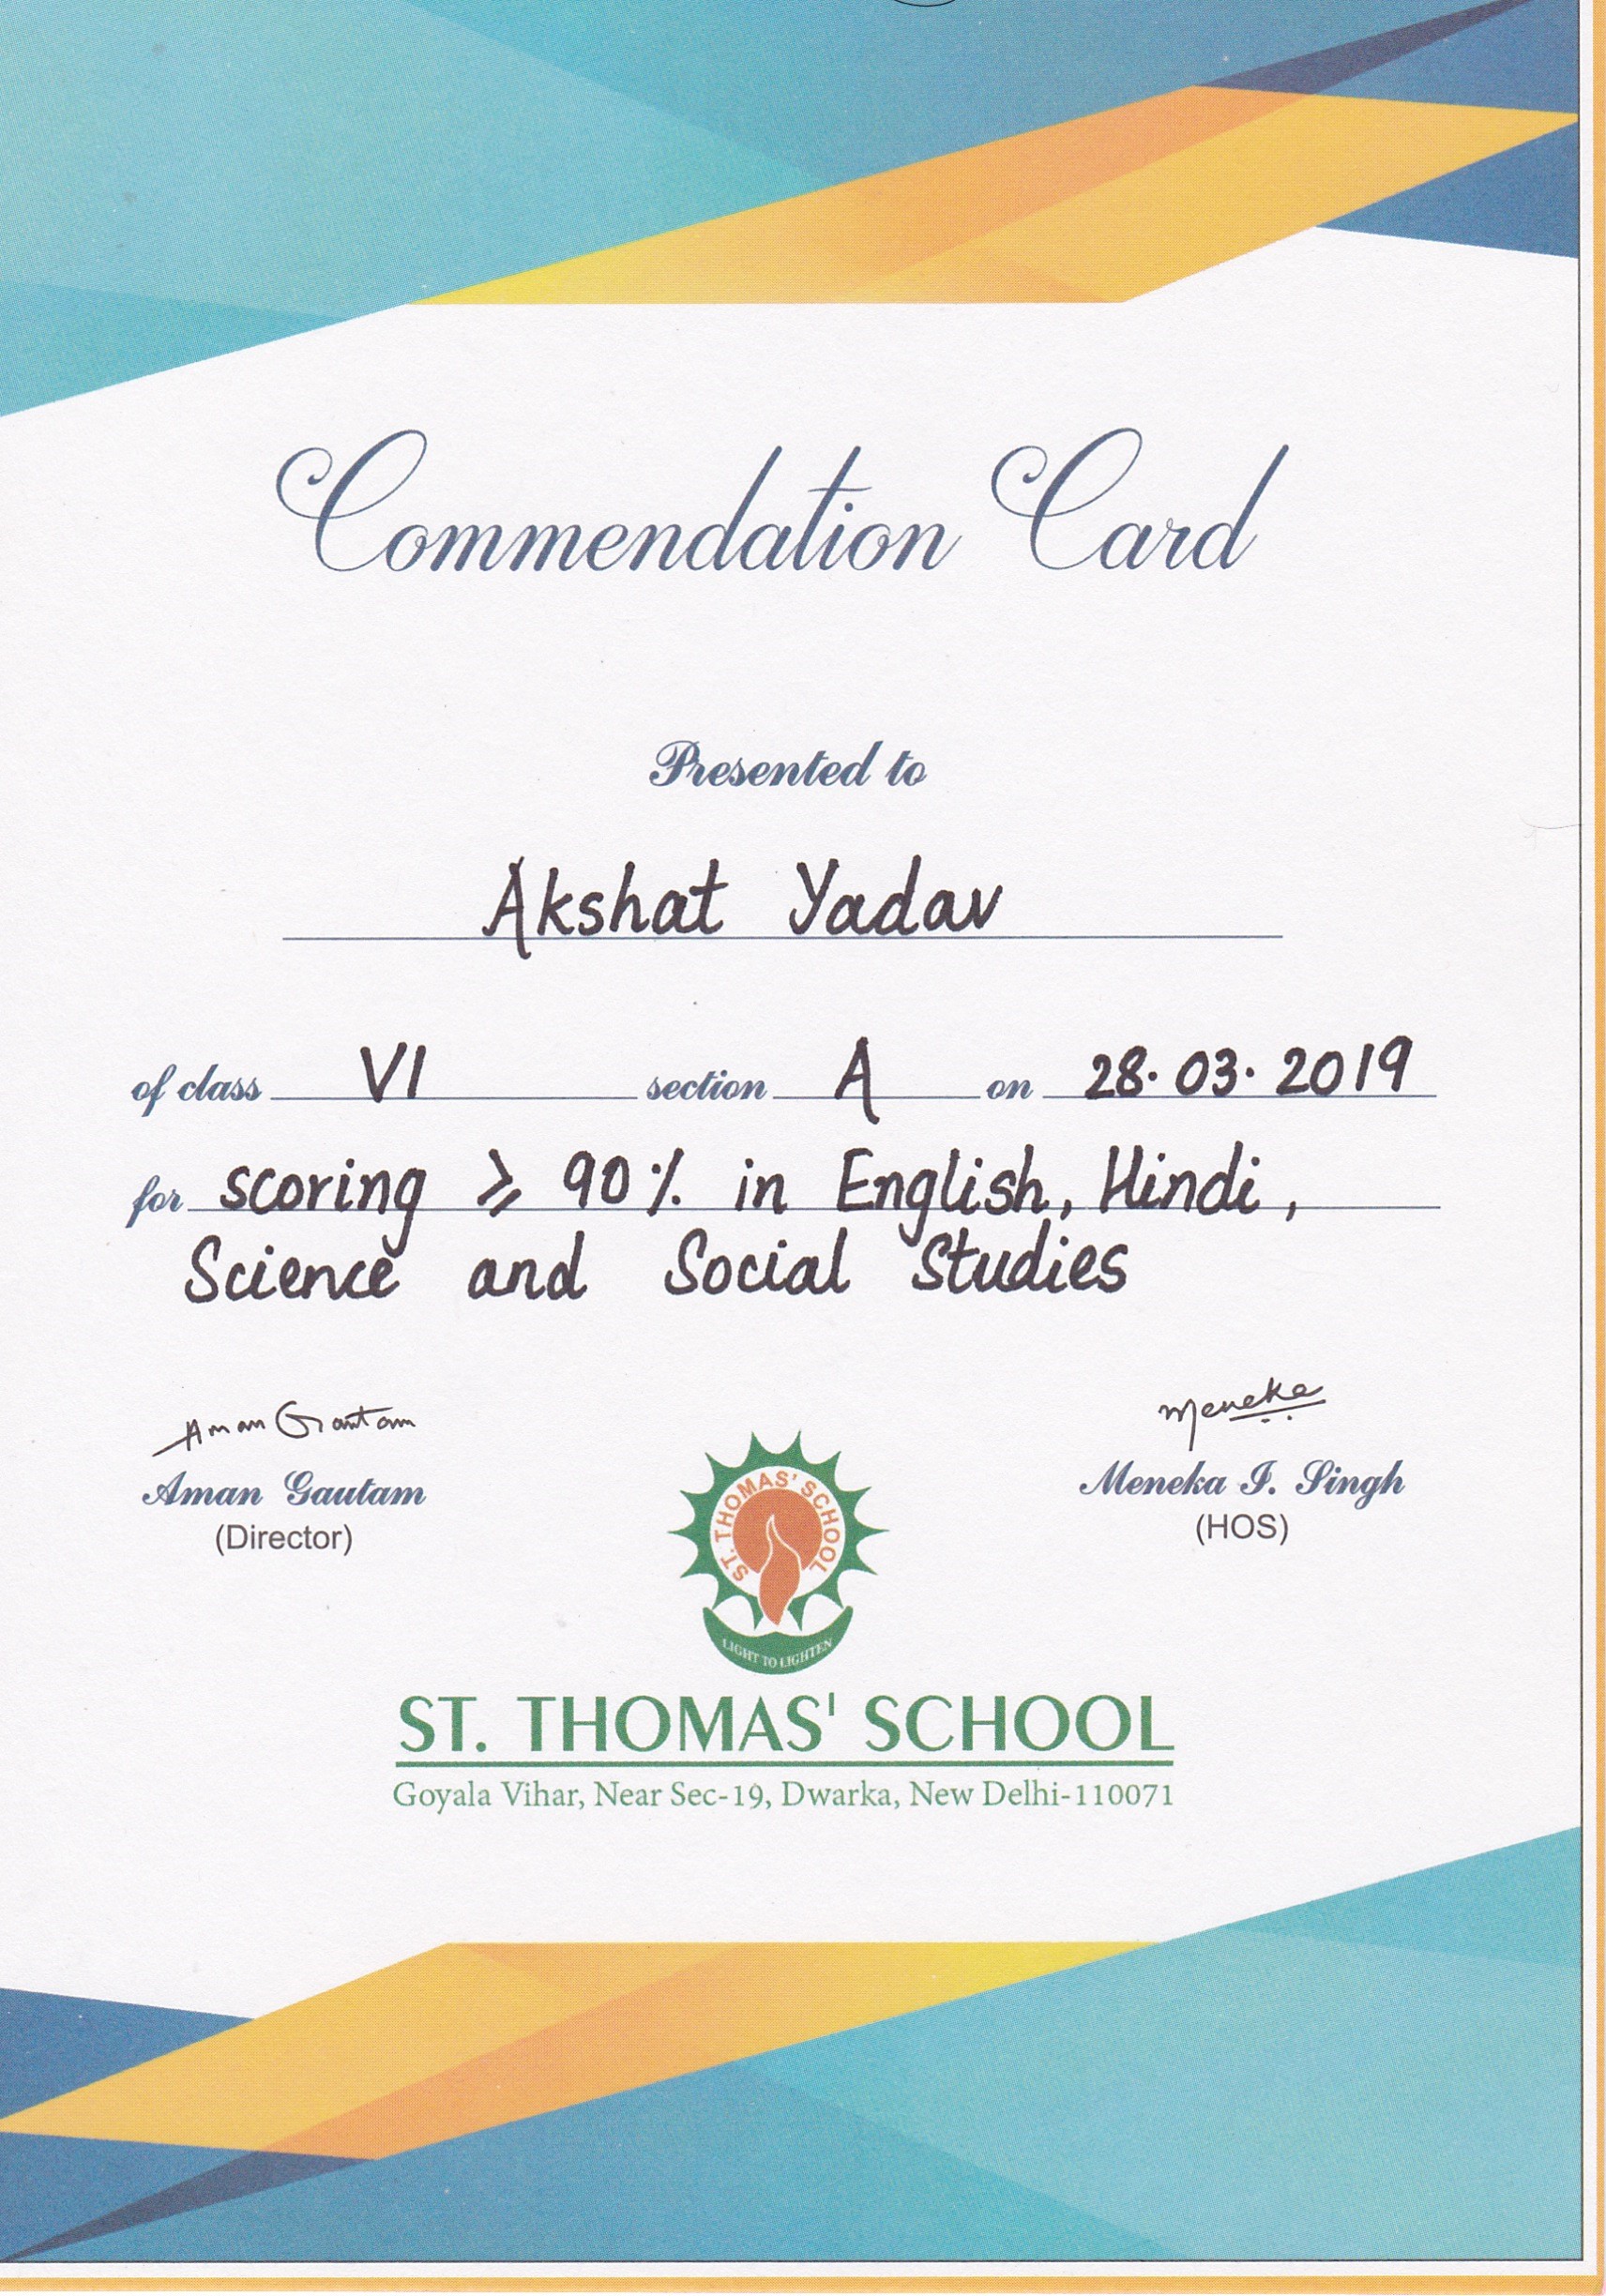 Commendation Card
Presented to
Akshat Yadav
of class VI section A on 28.03.2019
for scoring ≥ 90% in English, Hindi,
Science and Social Studies
Aman Gautam
Meneka
Aman Gautam
Meneka I. Singh
(Director)
(HOS)
ST. THOMAS' SCHOOL
LIGHT TO LIGHTEN
ST. THOMAS' SCHOOL
Goyala Vihar, Near Sec-19, Dwarka, New Delhi-110071